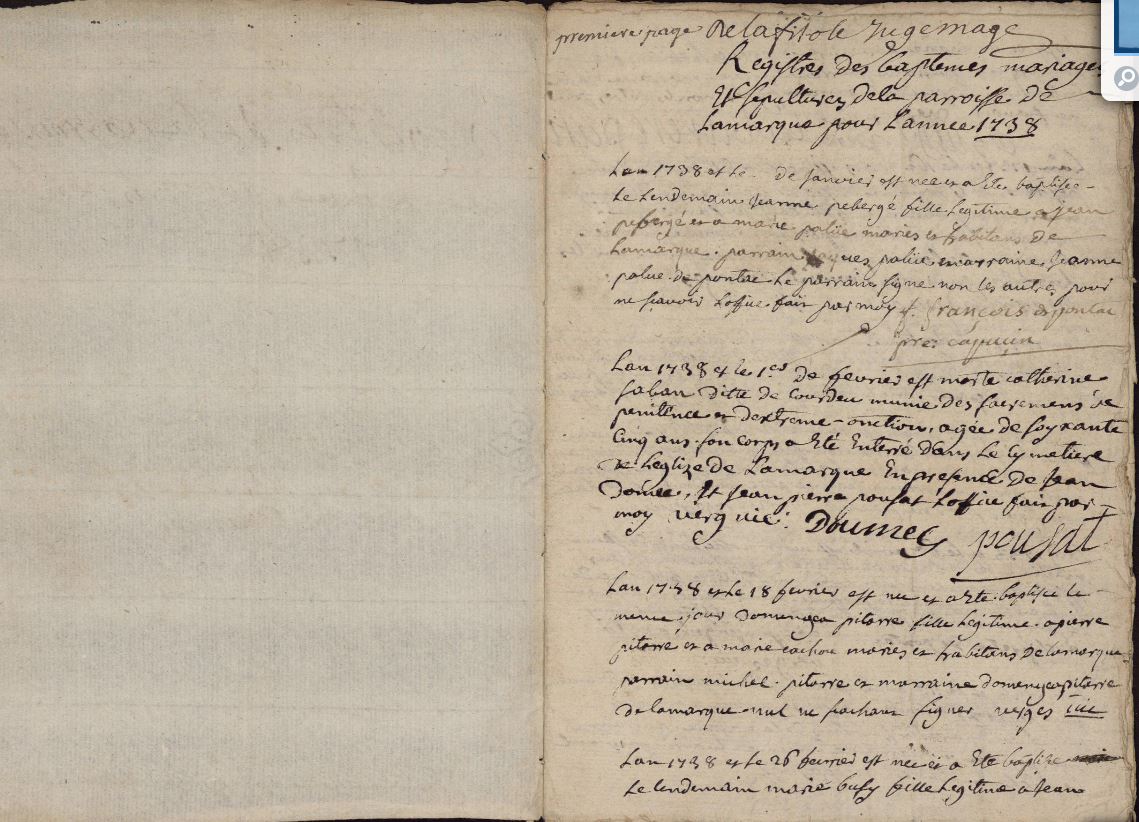 premiere page Delafitole Jugemage
Registres des baptemes mariages
Et sepultures dela parroisse de
Lamarque pour Lannee 1738
Lan 1738 et le de janvier est nee et a Ete baptisée
Le Lendemain Jeanne pebergé fille Legitime a jean
pebergé et a marie palüe maries et habitans de
Lamarque. parrain jaques palüe marraine Jeanne
palue de pontac Le parrain signe non les autres pour
ne scavoir Loffice fait par moy f. françois de pontac
pre: capucin
Lan 1738 et le 1er de fevrier est morte catherine
saban ditte de Courdeu munie des sacremens de
penitence et dextreme-onction, agée de soyxante
Cinq ans. son corps a Eté Enterré dans Le Cymetiere
de Leglize de Lamarque En presence de Jean
Domec, Et Jean pierre pousat Loffice fait par
moy verges vic: Doumec pousat
Lan 1738 et Le 18 fevrier est nee et a Ete baptisée le
meme jour Domenga pitarre fille Legitime a pierre
pitarre et a marie cachou maries et habitans Delamarque
parrain michel pitarre et marraine domenga pitarre
de lamarque nul ne sachant signer verges vic
Lan 1738 et Le 26 fevrier est née et a Ete baptise
Le lendemain marie busy fille Legitime a Jean